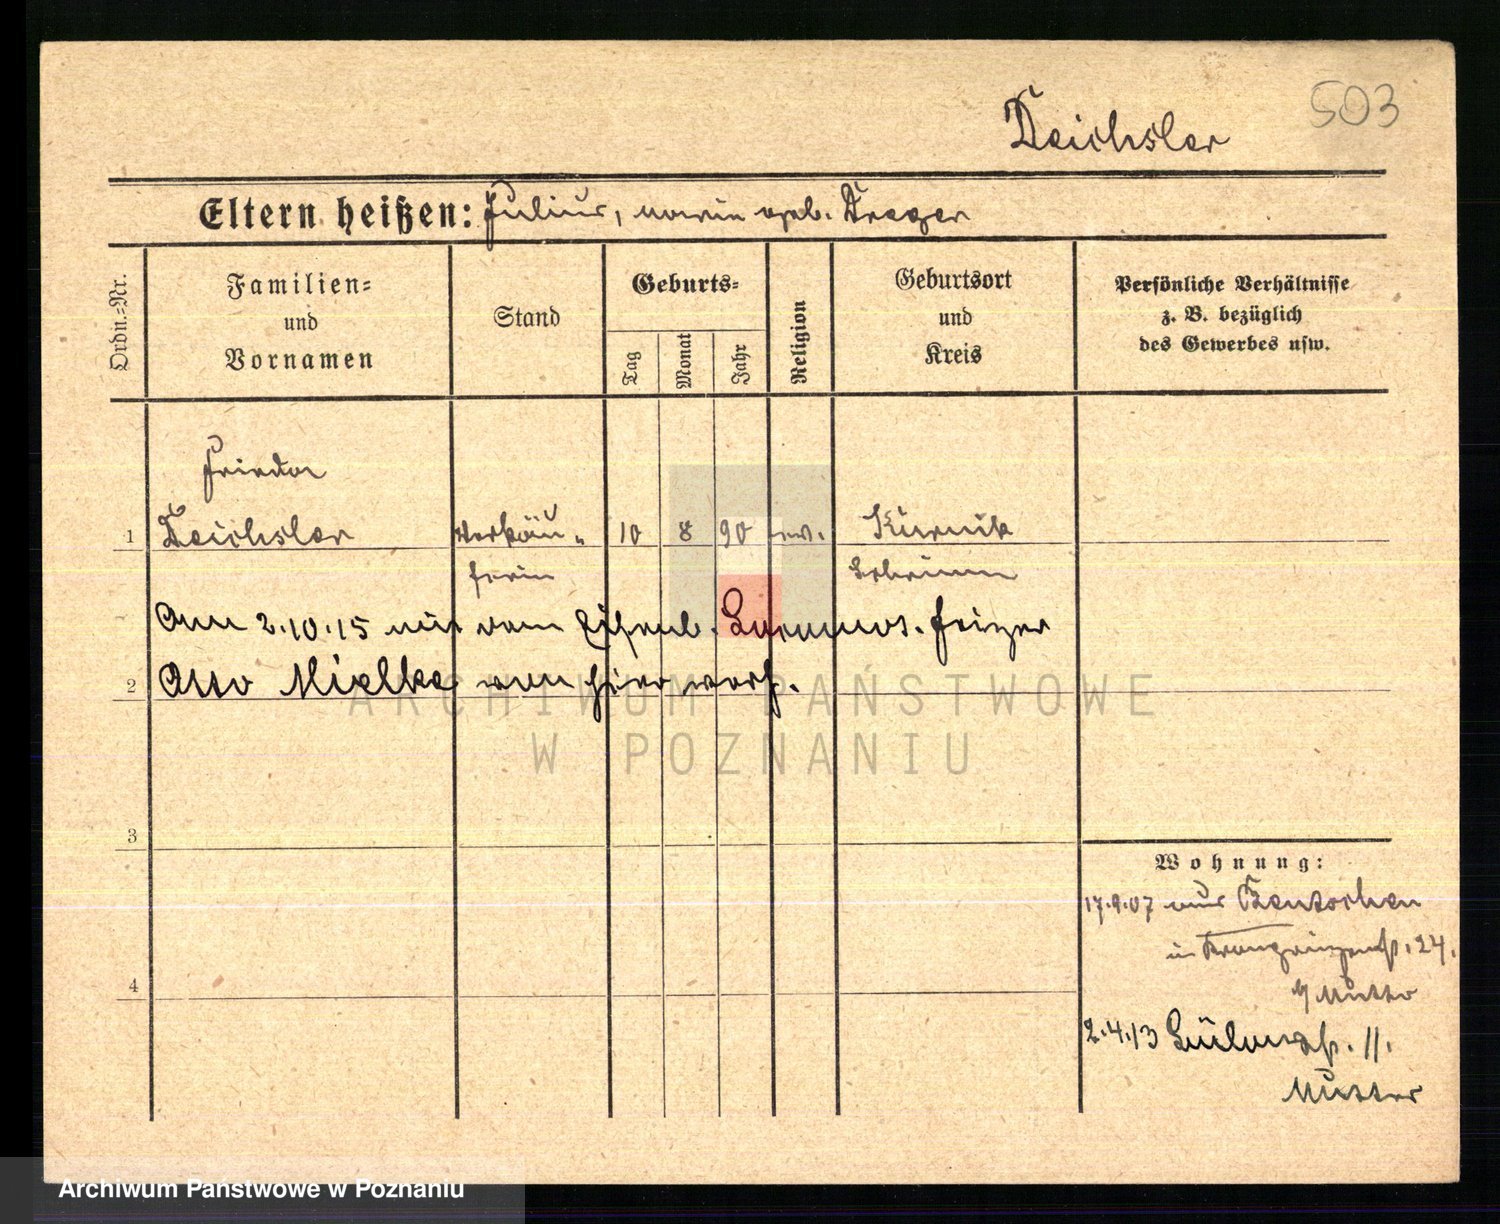 Deichsler 503
Eltern heißen: Julius, Maria geb. Dreger
Ordn.-Nr.
Familien-
und
Vornamen
Stand
Geburts-
Tag
Monat
Jahr
Religion
Geburtsort
und
Kreis
Persönliche Verhältnisse
z. B. bezüglich
des Gewerbes usw.
Frieda
1 Deichsler Verkäu- 10 8 90 ev. Kurnik
ferin Schrimm
Am 2.10.15 mit dem Eisenb. heizer
2 Otto Mielke von hier verh.
ARCHIWUM PAŃSTWOWE
W POZNANIU
3
Wohnung:
17.9.07 aus Bentschen
in 24.
b/ Mutter
4
2.4.13 11.
Mutter
Archiwum Państwowe w Poznaniu